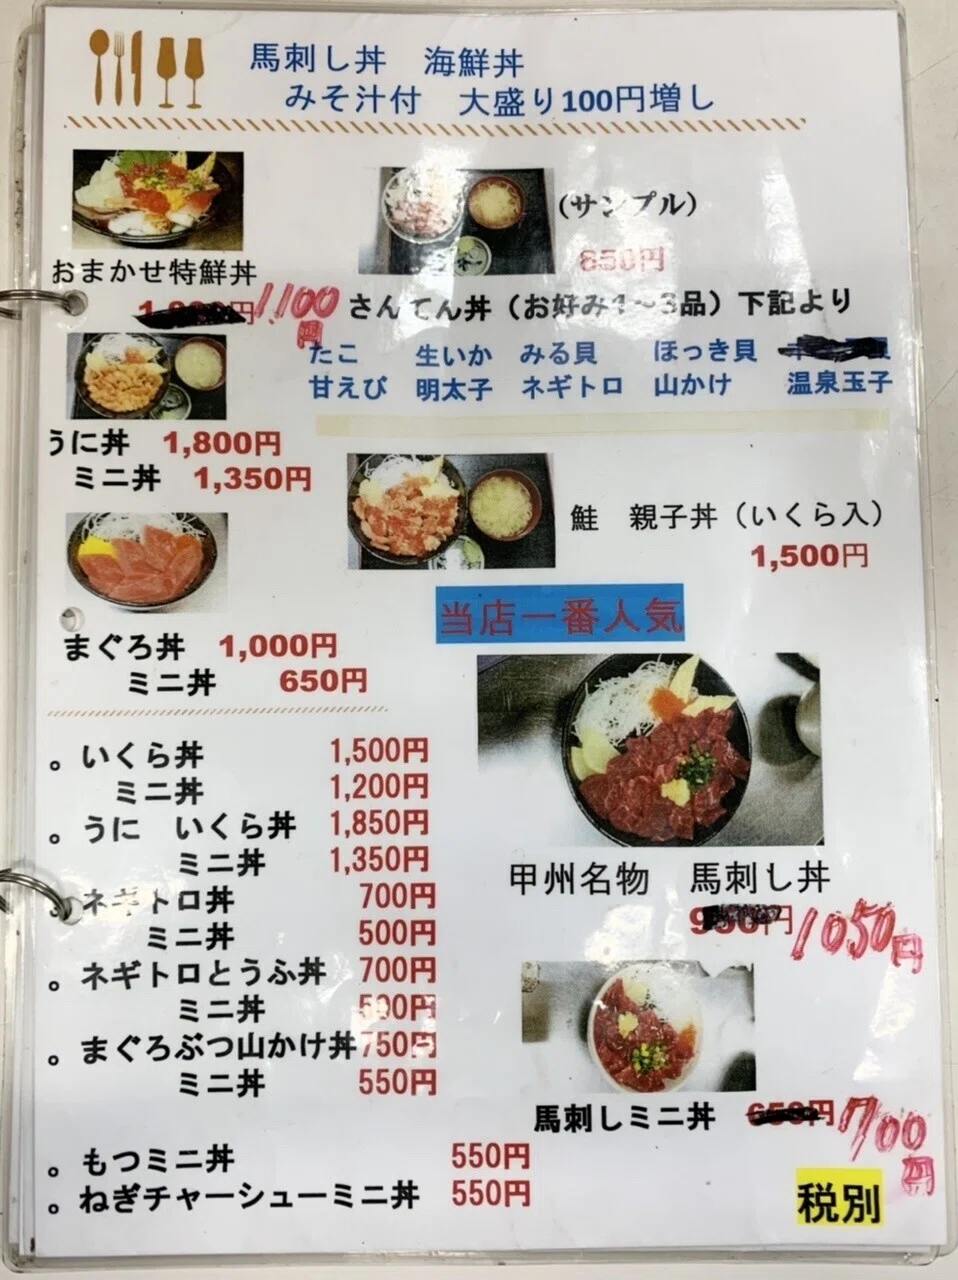 馬刺し丼　海鮮丼
みそ汁付　大盛り100円増し
おまかせ特鮮丼
1100円
(サンプル)
850円
さんてん丼（お好み1～3品）下記より
たこ　生いか　みる貝　ほっき貝
甘えび　明太子　ネギトロ　山かけ　温泉玉子
うに丼　1,800円
ミニ丼　1,350円
鮭　親子丼（いくら入）
1,500円
まぐろ丼　1,000円
ミニ丼　650円
当店一番人気
甲州名物　馬刺し丼
950円 1050円
馬刺しミニ丼　650円 700円
。いくら丼　1,500円
ミニ丼　1,200円
。うに　いくら丼　1,850円
ミニ丼　1,350円
。ネギトロ丼　700円
ミニ丼　500円
。ネギトロとうふ丼　700円
ミニ丼　500円
。まぐろぶつ山かけ丼750円
ミニ丼　550円
。もつミニ丼　550円
。ねぎチャーシューミニ丼　550円
税別